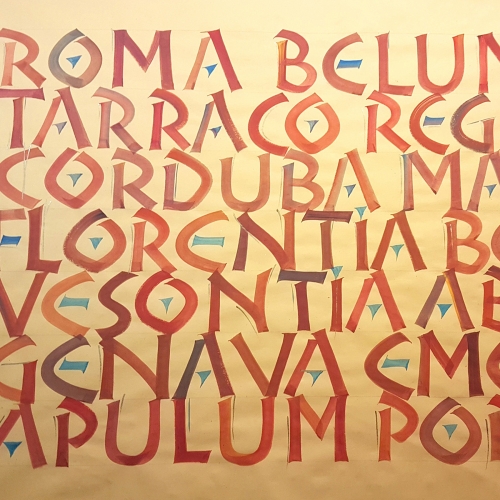 ROMA BELUN
TARRACO REG
CORDUBA MA
FLORENTIA BO
VESONTIA AB
GENAVA EMO
APULUM POR